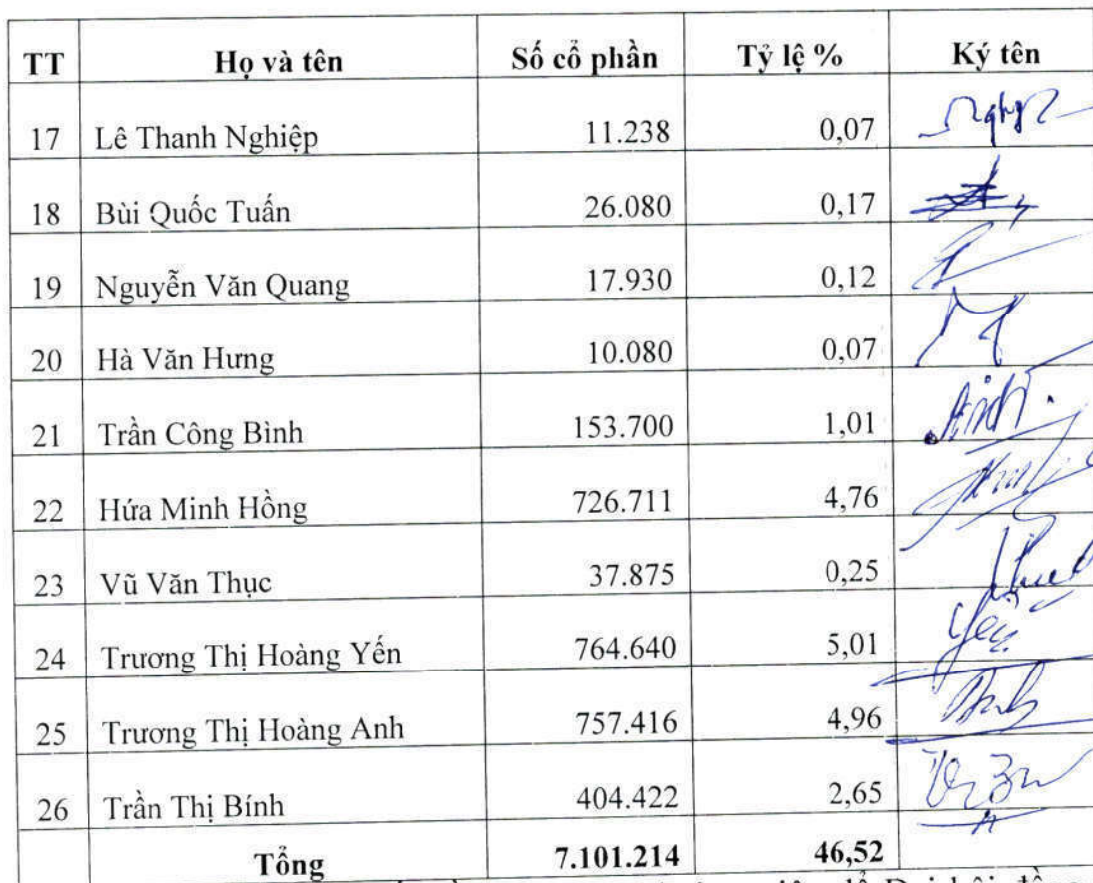 TT Họ và tên Số cổ phần Tỷ lệ % Ký tên
17 Lê Thanh Nghiệp 11.238 0,07
18 Bùi Quốc Tuấn 26.080 0,17
19 Nguyễn Văn Quang 17.930 0,12
20 Hà Văn Hưng 10.080 0,07
21 Trần Công Bình 153.700 1,01
22 Hứa Minh Hồng 726.711 4,76
23 Vũ Văn Thục 37.875 0,25
24 Trương Thị Hoàng Yến 764.640 5,01 Yến
25 Trương Thị Hoàng Anh 757.416 4,96
26 Trần Thị Bính 404.422 2,65
Tổng 7.101.214 46,52
Đại hội đồng